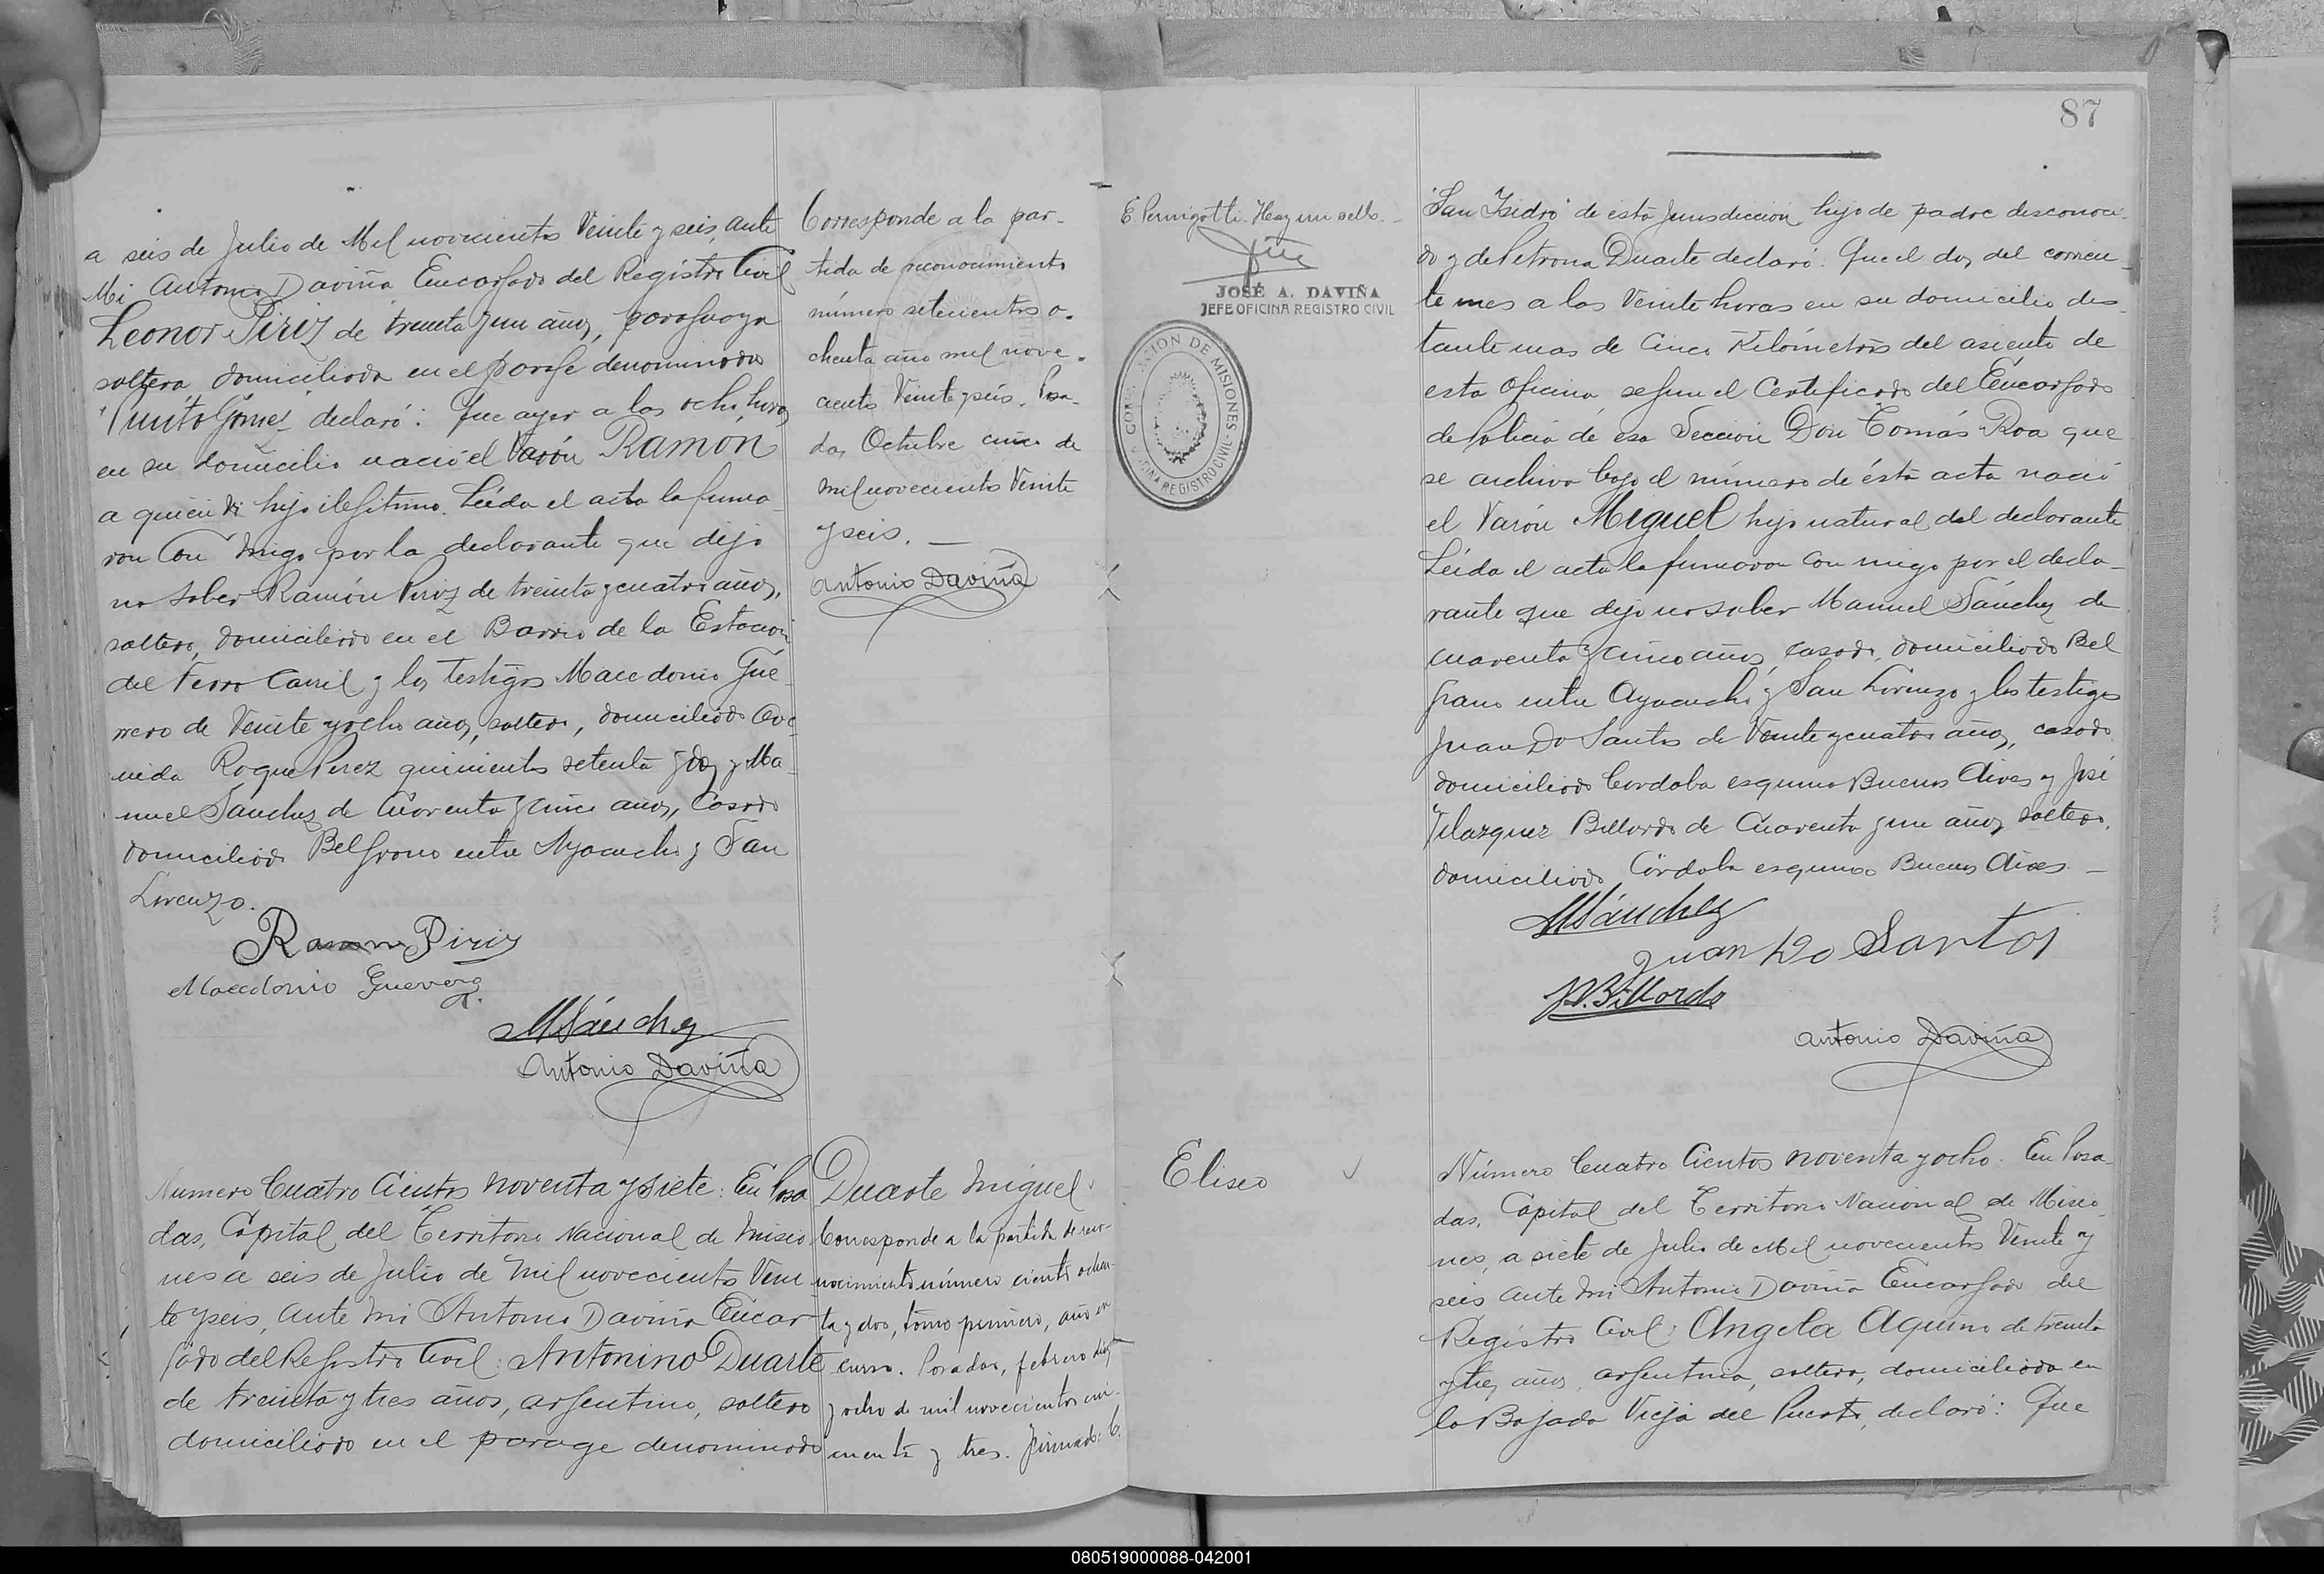 a seis de Julio de Mil novecientos Veinte y seis, ante
Mi Antonio Daviña Encargado del Registro Civil
Leonor Piriz de treinta y un años, paraguaya
soltera domiciliada en el paraje denominado
declaró: Que ayer a las ocho horas
en su domicilio nació el Varón Ramón
a quien dí hijo ilegitimo. Leída el acta la firma
ron con migo por la declarante que dijo
no saber Ramón Piriz de treinta y cuatro años,
soltero, domiciliado en el Barrio de la Estación
del Ferro Carril y los testigos Macedonio Gue
rrero de Veinte y ocho años, soltero, domiciliado Ave
nida Roque Perez quinientos setenta y dos y Ma
nuel Sanchez de Cuarenta y cinco años, Casado
domiciliado Belgrano entre Ayacucho y San
Lorenzo.
Ramon Piriz
Macedonio Guerrero
MSánchez
Antonio Daviña
Numero Cuatro Cientos noventa y siete: En Posa
das, Capital del Territorio Nacional de Misio
nes a seis de Julio de Mil novecientos Vein
te y seis, ante mi Antonio Daviña Encar
gado del Registro Civil: Antonino Duarte
de treinta y tres años, argentino, soltero
domiciliado en el parage denominado
Corresponde a la par-
tida de reconocimiento
número setecientos o-
chenta año mil nove-
cientos Veinte y seis. Posa-
das Octubre cinco de
mil novecientos Veinte
y seis. —
Antonio Daviña
Duarte Miguel
Corresponde a la partida de reco-
nocimiento número ciento ochen-
ta y dos, tomo primero, año en
curso. Posadas, febrero diez
y ocho de mil novecientos cin-
cuenta y tres. Firmado: C.
E. Pernigotti. Hay un sello. -
JOSÉ A. DAVIÑA
JEFE OFICINA REGISTRO CIVIL
DE MISIONES
REGISTRO CIVIL
Eliseo
87
"San Isidro" de esta Jurisdiccion, hijo de padre desconoci-
do y de Petrona Duarte declaró: Que el dos del corrien-
te mes a las Veinte horas en su domicilio dis-
tante mas de Cinco Kilómetros del asiento de
esta Oficina, segun el Certificado del Encargado
de Policia de esa Sección Don Tomás Roa que
se archiva bajo el número de ésta acta nació
el Varón Miguel hijo natural del declarante
Leída el acta la firmaron con migo por el decla-
rante que dijo no saber Manuel Sánchez de
cuarenta y cinco años, casado, domiciliado Bel
grano entre Ayacucho y San Lorenzo y los testigos
Juan Do Santos de Veinte y cuatro años, casado
domiciliado Cordoba esquina Buenos Aires y José
Velazquez Billordo de Cuarenta y un años soltero,
domiciliado Córdoba esquina Buenos Aires. —
MSánchez
Juan Do Santos
J.V. Billordo
Antonio Daviña
Número Cuatro Cientos noventa y ocho. En Posa-
das, Capital del Territorio Nacional de Misio
nes, a siete de Julio de Mil novecientos Veinte y
seis ante mi Antonio Daviña Encargado del
Registro Civil: Angela Aquino de treinta
y tres años, argentina, soltera, domiciliada en
la Bajada Vieja del Puerto, declaró: Que
080519000088-042001